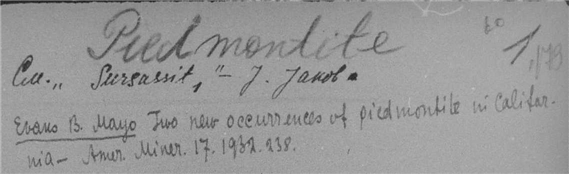 Piedmontite
1,
См. „Sursassit," – J. Jakob.
Evans B. Mayo Two new occurrences of piedmontite in Califor-
nia – Amer. Miner. 17. 1932. 238.